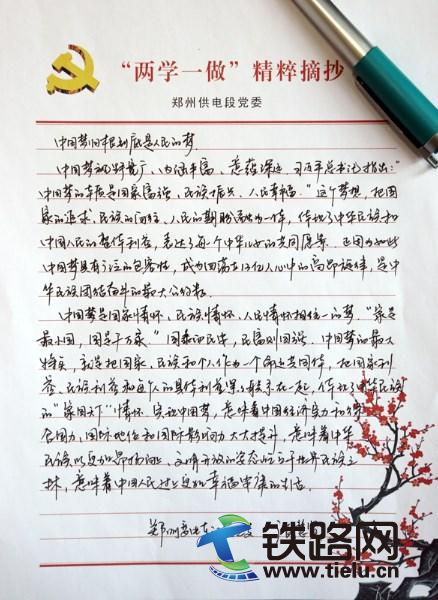 “两学一做”精粹摘抄
郑州供电段党委
中国梦归根到底是人民的梦
中国梦视野宽广、内涵丰富、意蕴深远。习近平总书记指出：“
中国梦的本质是国家富强、民族振兴、人民幸福。”这个梦想，把国
家的追求、民族的向往、人民的期盼融为一体，体现了中华民族和
中国人民的整体利益，表达了每个中华儿女的共同愿景。正因为如此
中国梦具有广泛的包容性，成为回荡在13亿人心中的高昂旋律，是中
华民族团结奋斗的最大公约数。
中国梦是国家情怀、民族情怀、人民情怀相统一的梦。“家是
最小国，国是千万家”。国泰而民安，民富则国强。中国梦的最大
特点，就是把国家、民族和个人作为一个命运共同体，把国家利
益、民族利益和每个人的具体利益紧紧联系在一起，体现了中华民族
的“家国天下”情怀。实现中国梦，意味着中国经济实力和综
合国力、国际地位和国际影响力大大提升，意味着中华
民族以更加昂扬向上、文明开放的姿态屹立于世界民族之
林，意味着中国人民过上更加幸福安康的生活。
郑州供电
铁路网
www.tielu.cn